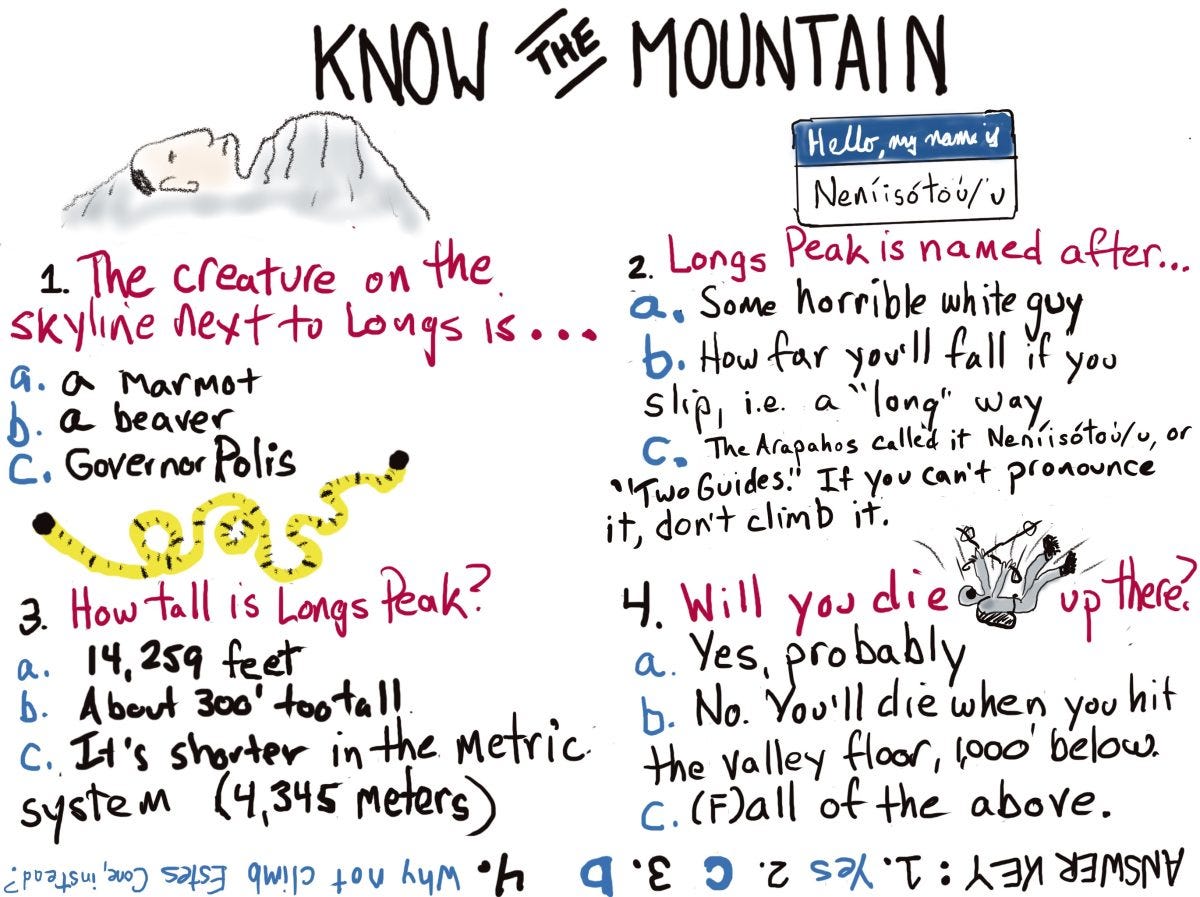 KNOW THE MOUNTAIN
Hello, my name is
Neníisótoú/'u
1. The creature on the
skyline next to Longs is...
a. a marmot
b. a beaver
c. Governor Polis
2. Longs Peak is named after...
a. Some horrible white guy
b. How far you'll fall if you
slip, i.e. a "long" way
c. The Arapahos called it Neníisótoú/u, or
"Two Guides." If you can't pronounce
it, don't climb it.
3. How tall is Longs Peak?
a. 14,259 feet
b. About 300' too tall
c. It's shorter in the metric
system (4,345 meters)
4. Will you die up there?
a. Yes, probably
b. No. You'll die when you hit
the valley floor, 1,000' below.
c. (F)all of the above.
ANSWER KEY: 1. Yes 2. C 3. D 4. Why not climb Estes Cone, instead?